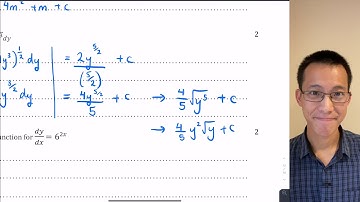 4m² + m + c
dy 2
y³)^½ dy = 2y^(5/2) / (5/2) + c
y^(3/2) dy = 4y^(5/2) / 5 + c → 4/5 √y⁵ + c
→ 4/5 y²√y + c
nction for dy/dx = 6^(2x) 2